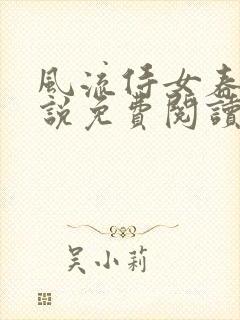 風流侍女春
說免費閱讀
吴小莉